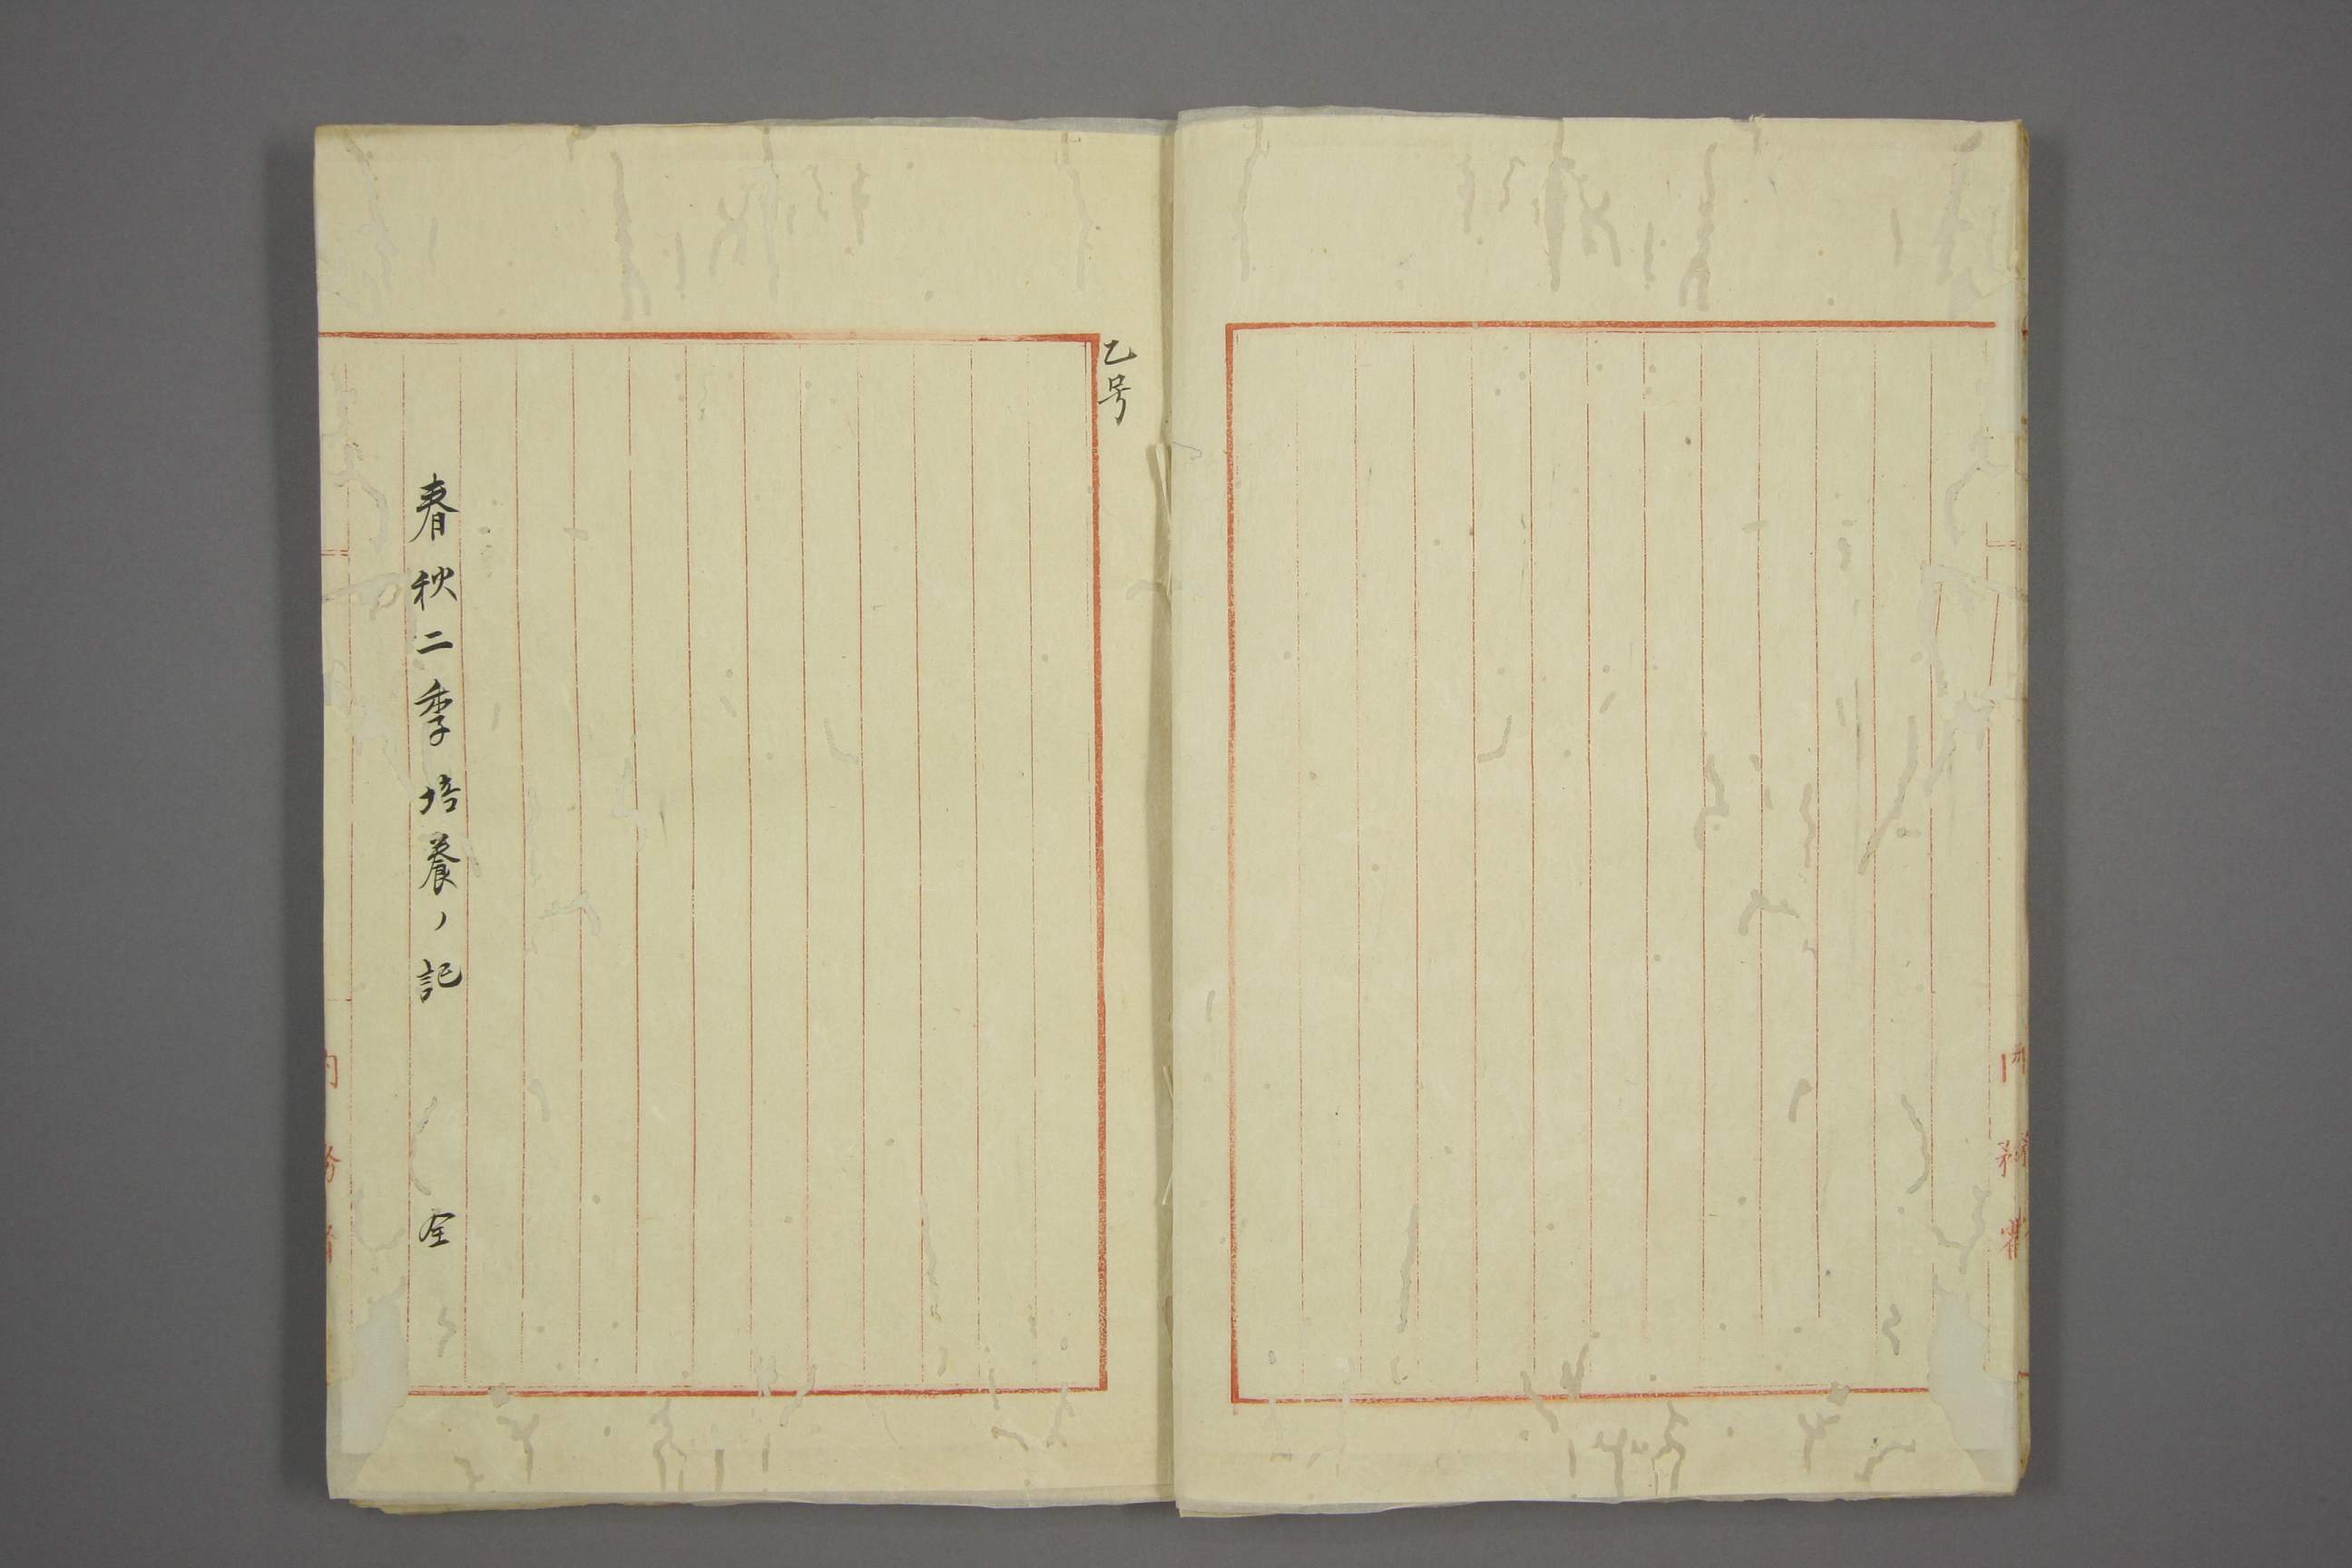 乙号
春秋二季培養ノ記　全
内務省
内務省